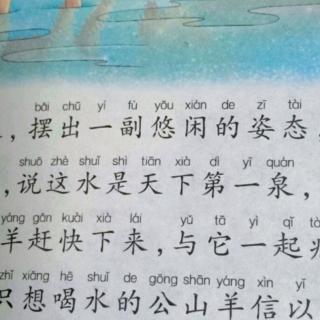 bǎi chū yí fù yōu xián de zī tài
,摆出一副悠闲的姿态,
shuō zhè shuǐ shì tiān xià dì yī quán
,说这水是天下第一泉,
yáng gǎn kuài xià lái yǔ tā yì qǐ
羊赶快下来,与它一起
zhǐ xiǎng hē shuǐ de gōng shān yáng xìn yǐ
只想喝水的公山羊信以